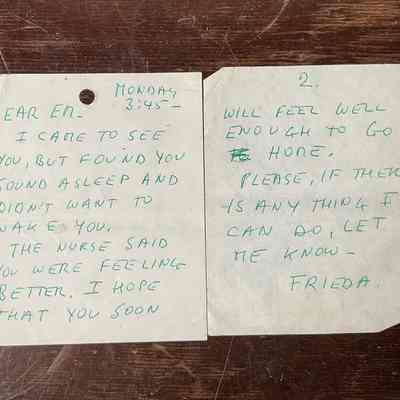 MONDAY
3:45-
EAR EM.
I CAME TO SEE
YOU, BUT FOUND YOU
SOUND ASLEEP AND
DIDN'T WANT TO
WAKE YOU.
THE NURSE SAID
YOU WERE FEELING
BETTER. I HOPE
THAT YOU SOON
2.
WILL FEEL WELL
ENOUGH TO GO
HOME.
PLEASE, IF THER
IS ANY THING I
CAN DO, LET
ME KNOW-
FRIEDA.